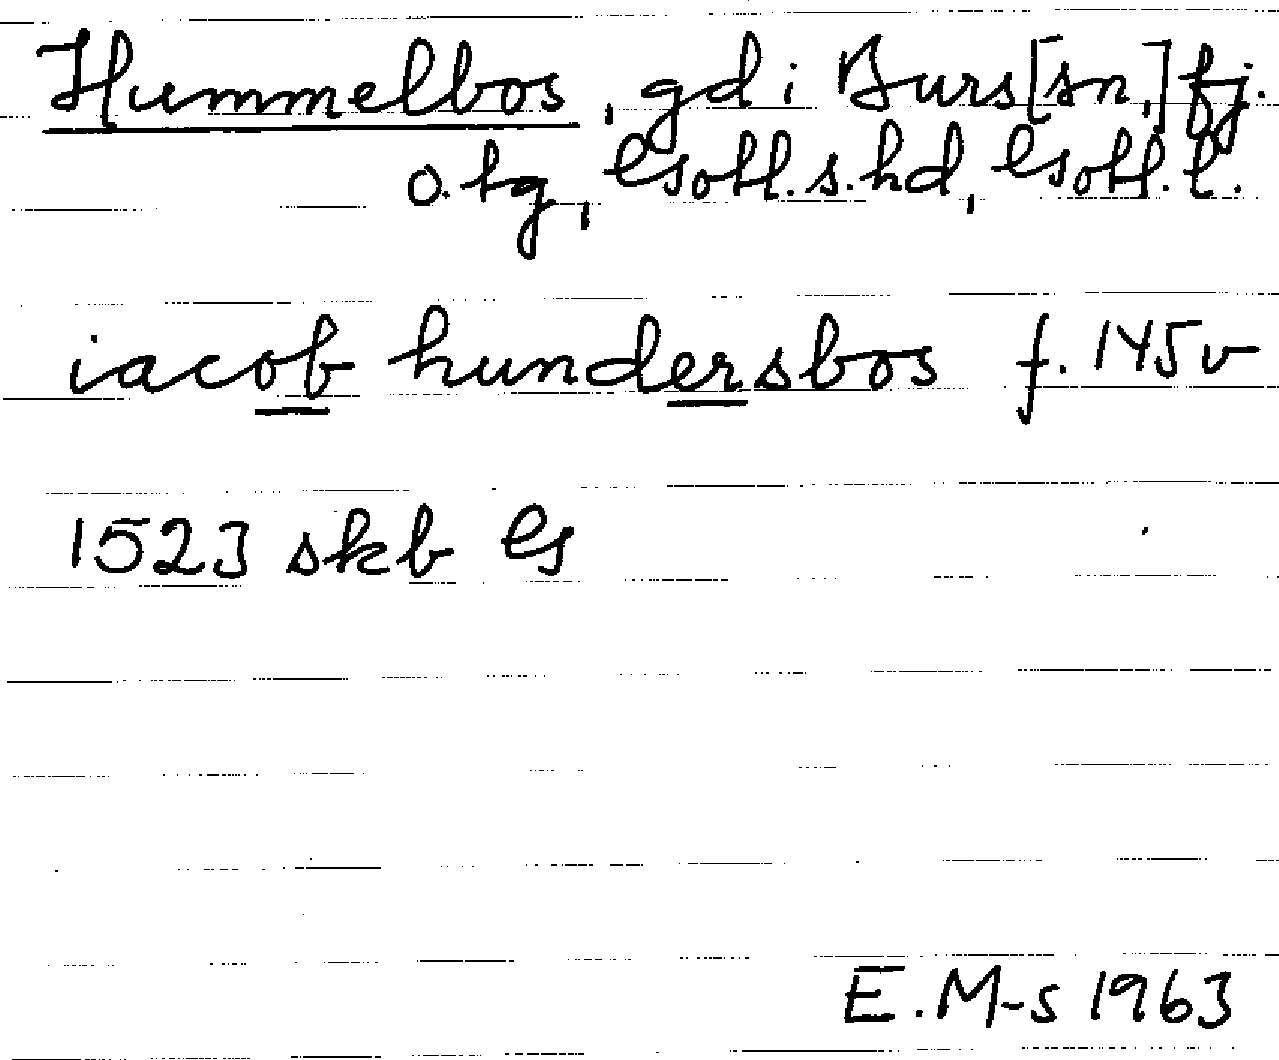 Hummelbos, gd i Burs [sn,] fj.
o. tg, Gotl. s. hd, Gotl. l.
iacob hundersbos f. 145v
1523 skb G
E. M-s 1963